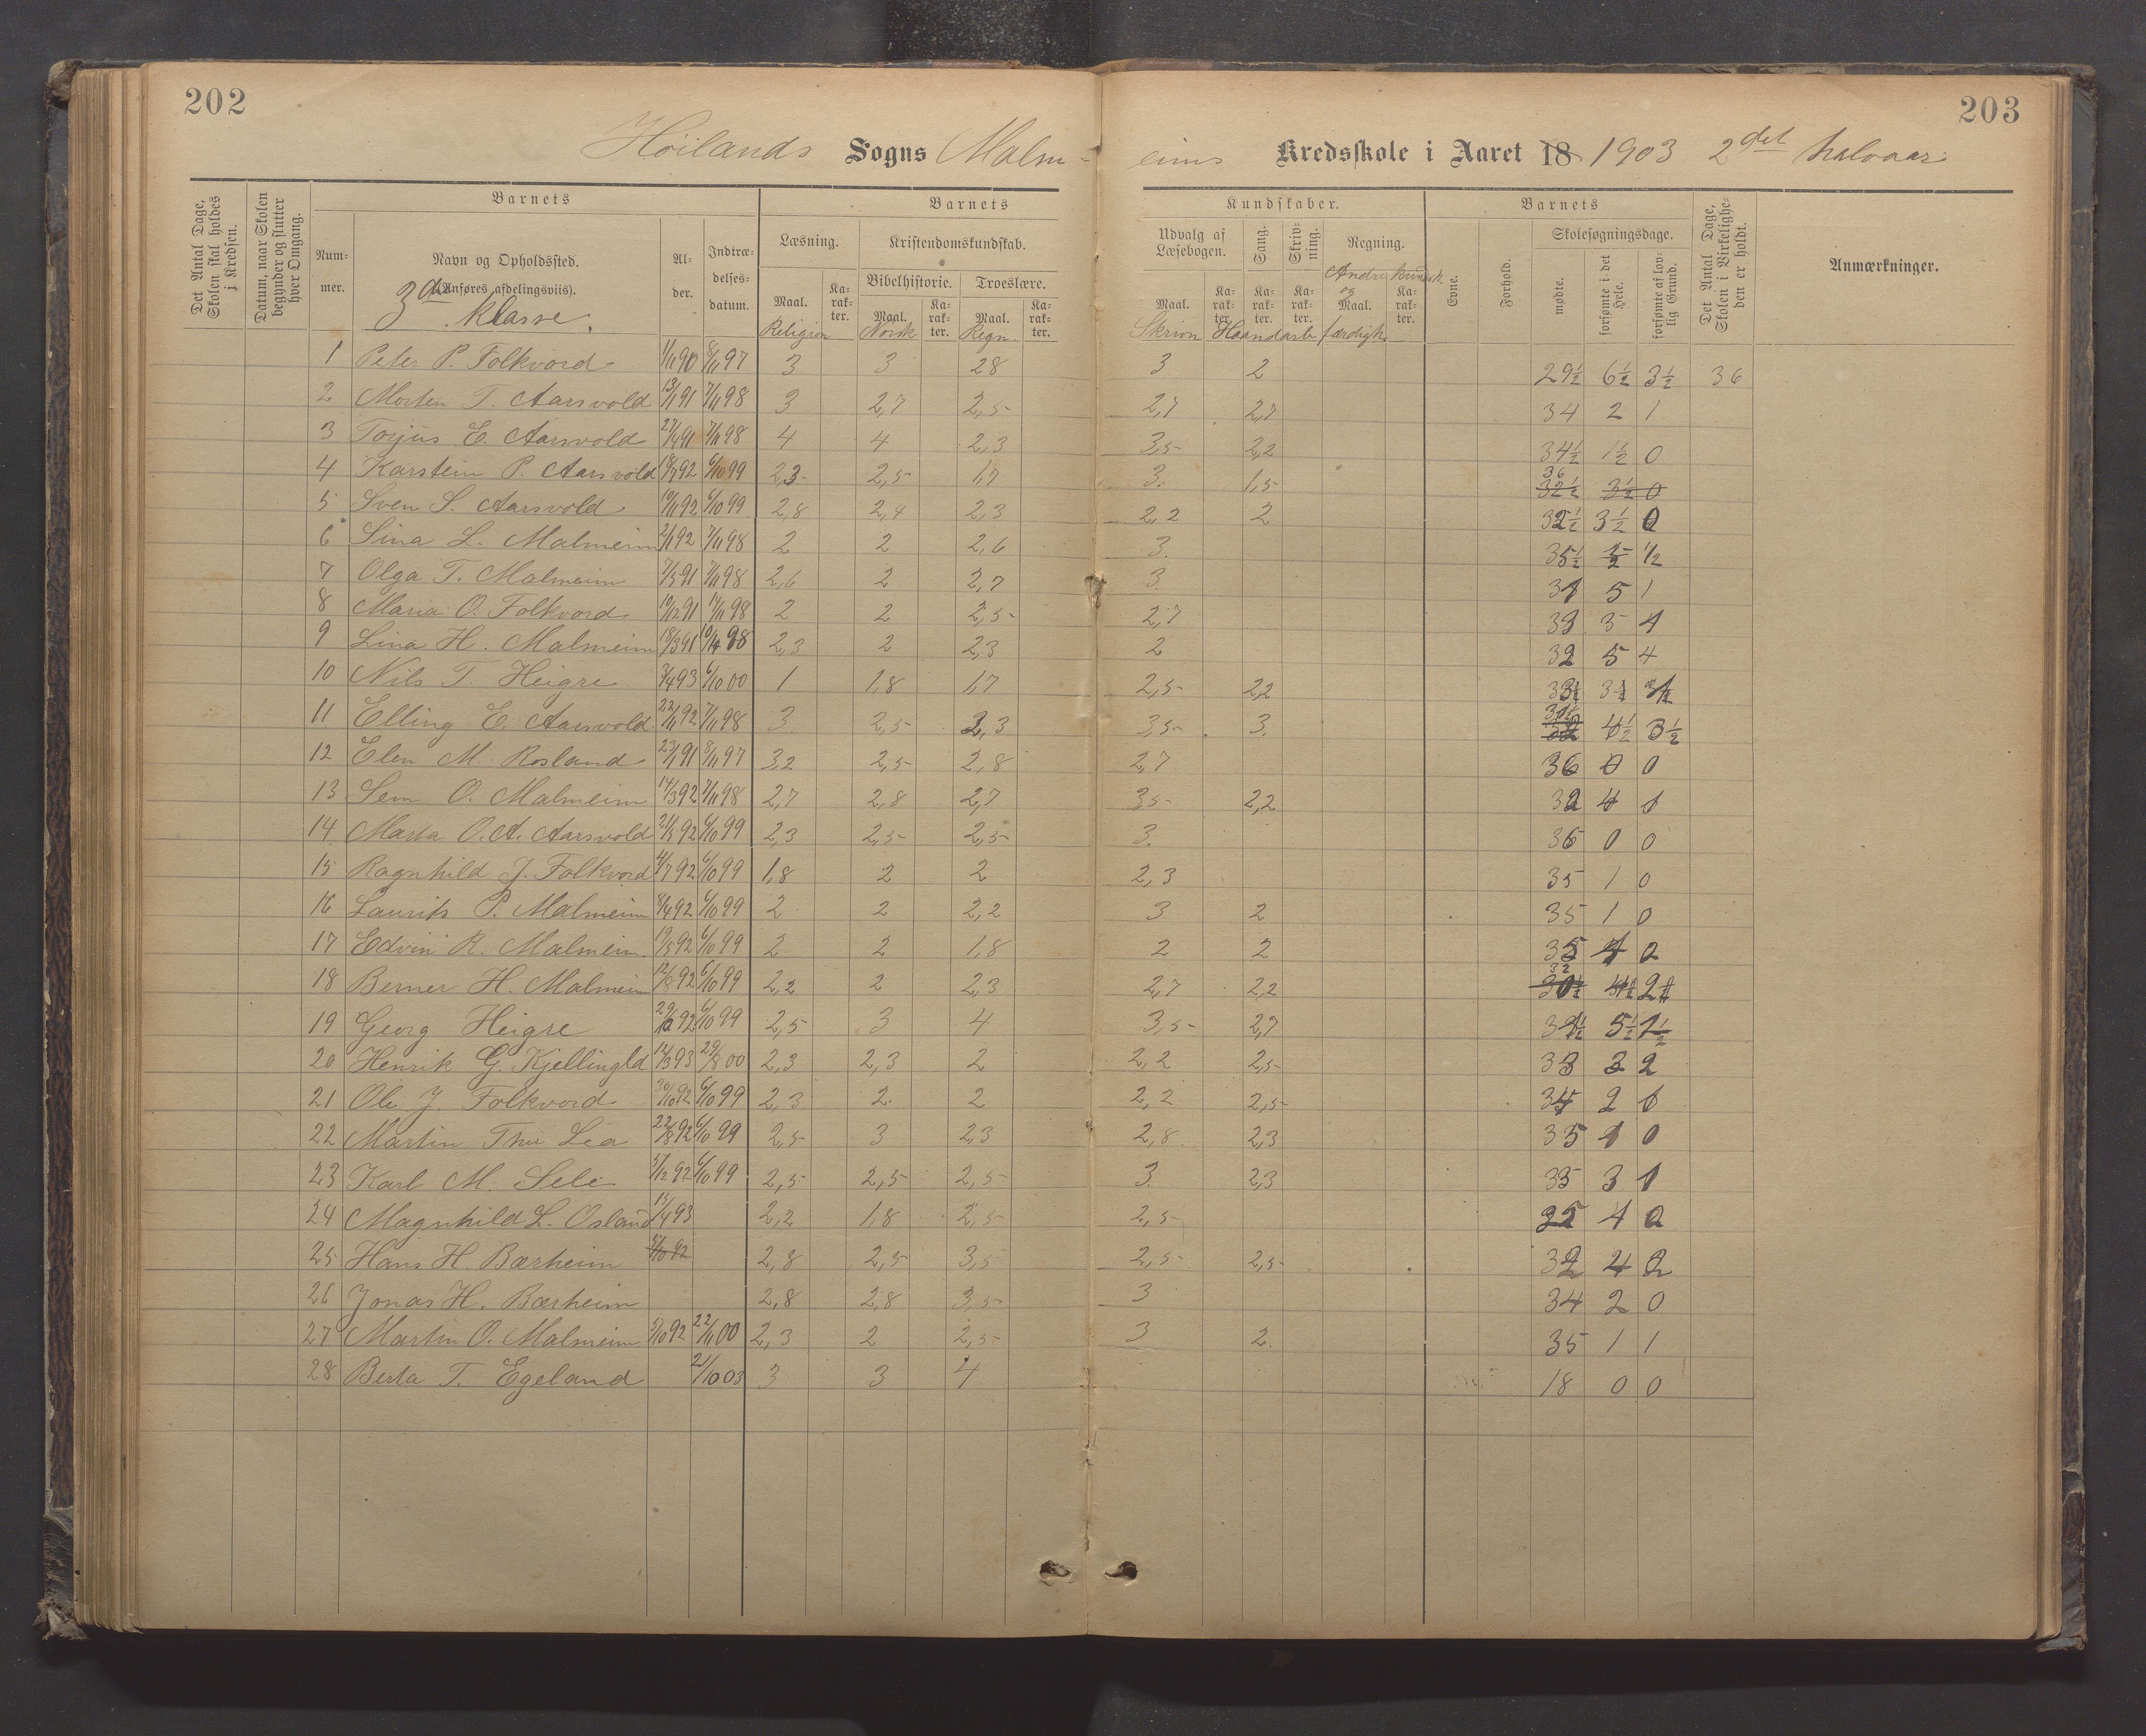 202
203
Høilands Sogns Malm-
eims Kredsskole i Aaret 18 1903 2det halvaar
Det Antal Dage, Skolen skal holdes i Kredsen.
Datum, naar Skolen begynder og slutter hver Omgang.
Barnets
Nummer.
Navn og Opholdssted.
(Anføres afdelingsviis).
3die klasse.
Alder.
Indtrædelsesdatum.
Barnets
Kundskaber.
Læsning.
Kristendomskundskab.
Bibelhistorie.
Troeslære.
Maal.
Karakter.
Maal.
Karakter.
Maal.
Karakter.
Religion
Norsk
Regn
Udvalg af Læsebogen.
Sang.
Skrivning.
Regning.
Andre kundsk. og
Maal.
Karakter.
Karakter.
Karakter.
Maal.
Karakter.
Skrivn
Haandarb
færdigh.
Barnets
Evne.
Forhold.
Skolesøgningsdage.
mødte.
forsømte i det Hele.
forsømte af lovlig Grund.
Det Antal Dage, Skolen i Virkeligheden er holdt.
Anmærkninger.
1 Peter P. Folkvord 1/11 90 8/11 97 3 3 28 3 2 29½ 6½ 3½ 36
2 Morten T. Aarsvold 13/1 91 7/11 98 3 2,7 2,5 2,7 2,7 34 2 1
3 Torjus E. Aarsvold 27/4 91 7/11 98 4 4 2,3 3,5 2,2 34½ 1½ 0
4 Karstein P. Aarsvold 18/7 92 6/10 99 2,3 2,5 1,7 3. 1,5 36 32½ 3½ 0
5 Sven S. Aarsvold 10/11 92 6/10 99 2,8 2,4 2,3 2,2 2 32½ 3½ 0
6 Sina L. Malmeim 2/1 92 7/11 98 2 2 2,6 3. 35½ ½ 1/2
7 Olga T. Malmeim 7/5 91 7/11 98 2,6 2 2,7 3. 31 5 1
8 Maria O. Folkvord 10/12 91 14/11 98 2 2 2,5 2,7 33 3 1
9 Lina H. Malmeim 18/3 91 98 2,3 2 2,3 2 32 5 4
10 Nils T. Heigre 3/4 93 6/10 00 1 1,8 1,7 2,5 2,2
11 Elling E. Aarsvold 22/11 92 7/11 98 3 2,5 2,3 3,5 3. 4½ 3½
12 Elen M. Rosland 23/1 91 8/11 97 3,2 2,5 2,8 2,7 36 0 0
13 Sem O. Malmeim 14/3 92 7/11 98 2,7 2,8 2,7 3,5 2,2 32 4
14. Marta O. A. Aarsvold 21/5 92 6/10 99 2,3 2,5 2,5 3. 36 0 0
15 Ragnhild J. Folkvord 4/7 92 6/10 99 1,8 2 2 2,3 35 1 0
16 Laurits P. Malmeim 8/4 92 6/10 99 2 2 2,2 3 2 35 1 0
17 Edvin R. Malmeim 19/5 92 6/10 99 2 2 1,8 2 2 35 1 0
18 Berner H. Malmeim 12/8 92 6/10 99 2,2 2 2,3 2,7 2,2 32
19 Georg Heigre 29/10 92 6/10 99 2,5 3 4 3,5 2,7 5½ 1½
20 Henrik G. Kjellingld 14/3 93 29/8 00 2,3 2,3 2 2,2 2,5 33 3 2
21 Ole J. Folkvord 30/10 92 6/10 99 2,3 2 2 2,2 2,5 34 2
22 Martin Thu Lea 22/8 92 6/10 99 2,5 3 2,3 2,8 2,3 35 1 0
23 Karl M. Sele 5/12 92 6/10 99 2,5 2,5 2,5 3. 2,3 33 3 1
24 Magnhild L. Osland 15/4 93 2,2 1,8 2,5 2,5 4 0
25 Hans H. Bærheim 5/10 92 2,8 2,5 3,5 2,5 2,5 32 4 2
26 Jonas H. Bærheim 2,8 2,8 3,5 3 34 2 0
27 Martin O. Malmeim 5/10 92 22/11 00 2,3 2 2,5 3 2. 35 1 1
28 Berta T. Egeland 21/10 03 3 3 4 18 0 0